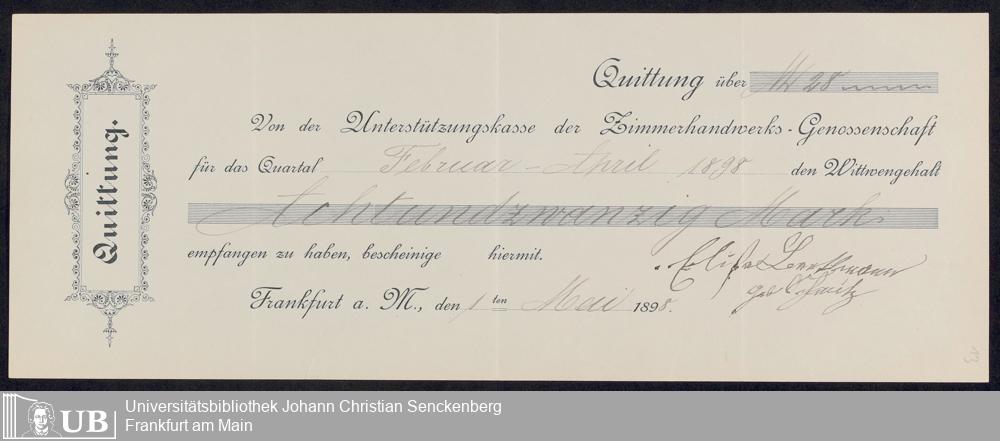 Quittung.
Quittung über M 28
Von der Unterstützungskasse der Zimmerhandwerks-Genossenschaft
für das Quartal Februar - April 1898 den Wittwengehalt
Achtundzwanzig Mark
empfangen zu haben, bescheinige hiermit.
Frankfurt a. M., den 1 ten Mai 1898.
geb.
13
UB
Universitätsbibliothek Johann Christian Senckenberg
Frankfurt am Main